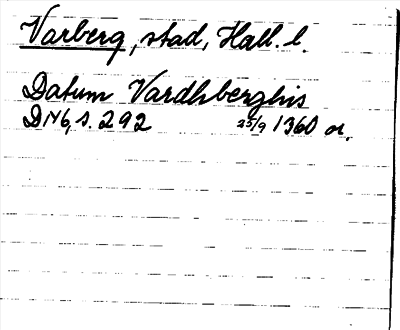 Varberg, stad, Hall. l.
Datum Vardhberghis
DN 6, s. 292 25/9 1360 or.